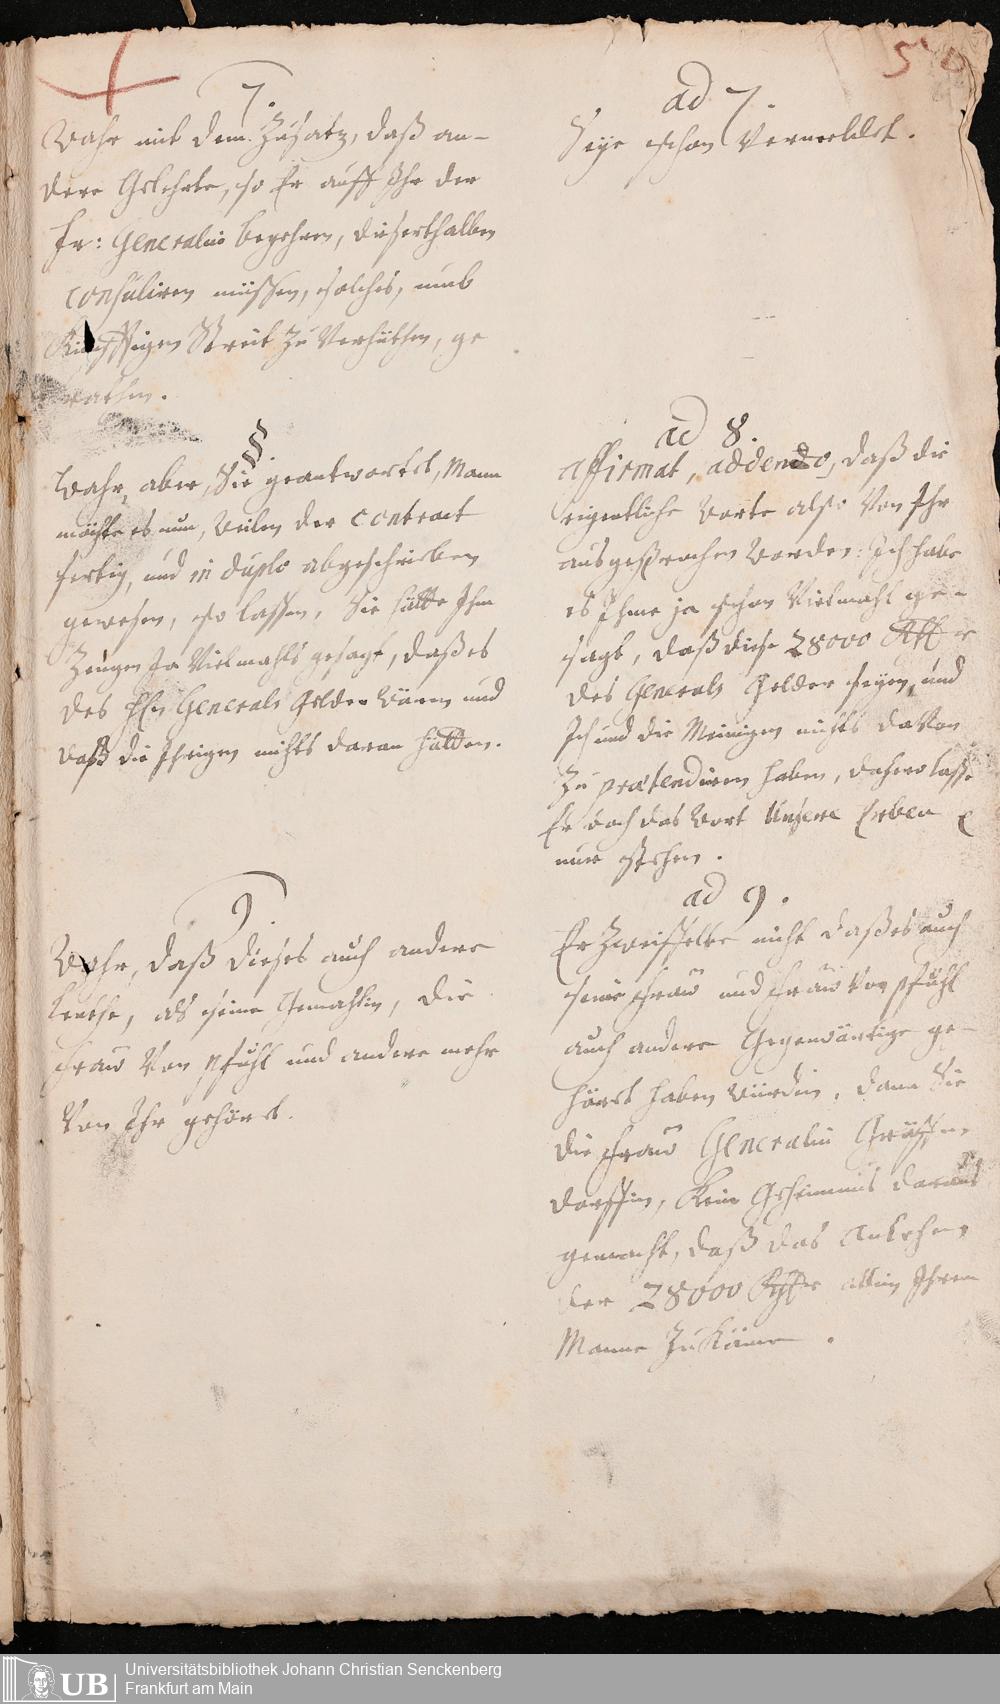 5
7.
Wahr mit dem Zusatz, daß an-
dere Gelehrte, so Er auff Ihr der
Fr: Generalin begehren, dieserthalben
consuliren müssen, solches, umb
Künfftigen Streit zu Verhüthen, ge
rathen.
8.
Wahr, aber, Sie geantwortet, Mann
möchte es nun, weilen der Contract
fertig, und in duplo abgeschrieben
gewesen, so lassen, Sie hätte Ihm
Zeugen ja Vielmahls gesagt, daß es
des Hln Generals Gelder wären und
daß die Ihrigen nichts daran hätten.
9.
Wahr, daß dieses auch andere
Leuthe, als seine Gemahlin, die
Frau Von Pfuhl und andere mehr
Von Ihr gehöret.
ad 7.
Seye schon Vermeldet.
ad 8.
Affirmat, addendo, daß die
eigentliche Worte also Von Ihr
ausgesprochen worden: Ich habe
es Ihme ja schon Vielmahl ge-
sagt, daß diese 28000 Rthlr
des Generals Gelder seyen, und
Ich und die Meinigen nichts davon
Zu praetendiren haben, dahero lasse
Er doch das Wort Unsere Erben
nur stehen.
ad 9.
Er Zweiffelte nicht daß es auch
seine Frau und Frau Von Pfuhl
auch andere Gegenwärtige ge-
höret haben würden, dann Sie
die Frau Generalin Gräffen-
dorffin, Kein Geheimnis daraus
gemacht, daß das Anlehen
der 28000 Rthlr allein Ihrem
Manne Zukäme.
UB
Universitätsbibliothek Johann Christian Senckenberg
Frankfurt am Main